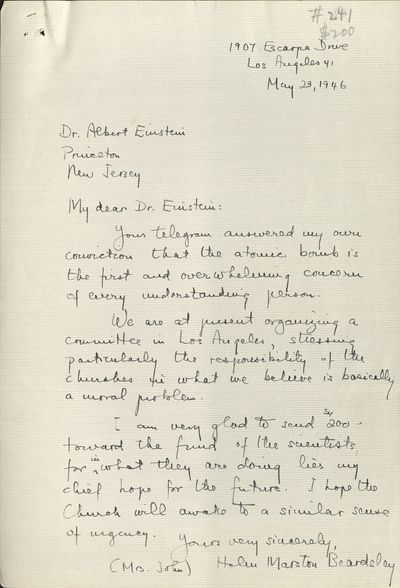 #241
$200
1907 Escarpa Drive
Los Angeles 41
May 23, 1946
Dr. Albert Einstein
Princeton
New Jersey
My dear Dr. Einstein:
Your telegram answered my own
conviction that the atomic bomb is
the first and overwhelming concern
of every understanding person.
We are at present organizing a
committee in Los Angeles, stressing
particularly the responsibility of the
churches in what we believe is basically
a moral problem.
I am very glad to send $200-
toward the fund of the scientists,
for in what they are doing lies my
chief hope for the future. I hope the
Church will awake to a similar sense
of urgency.
Yours very sincerely,
(Mrs. John) Helen Marston Beardsley